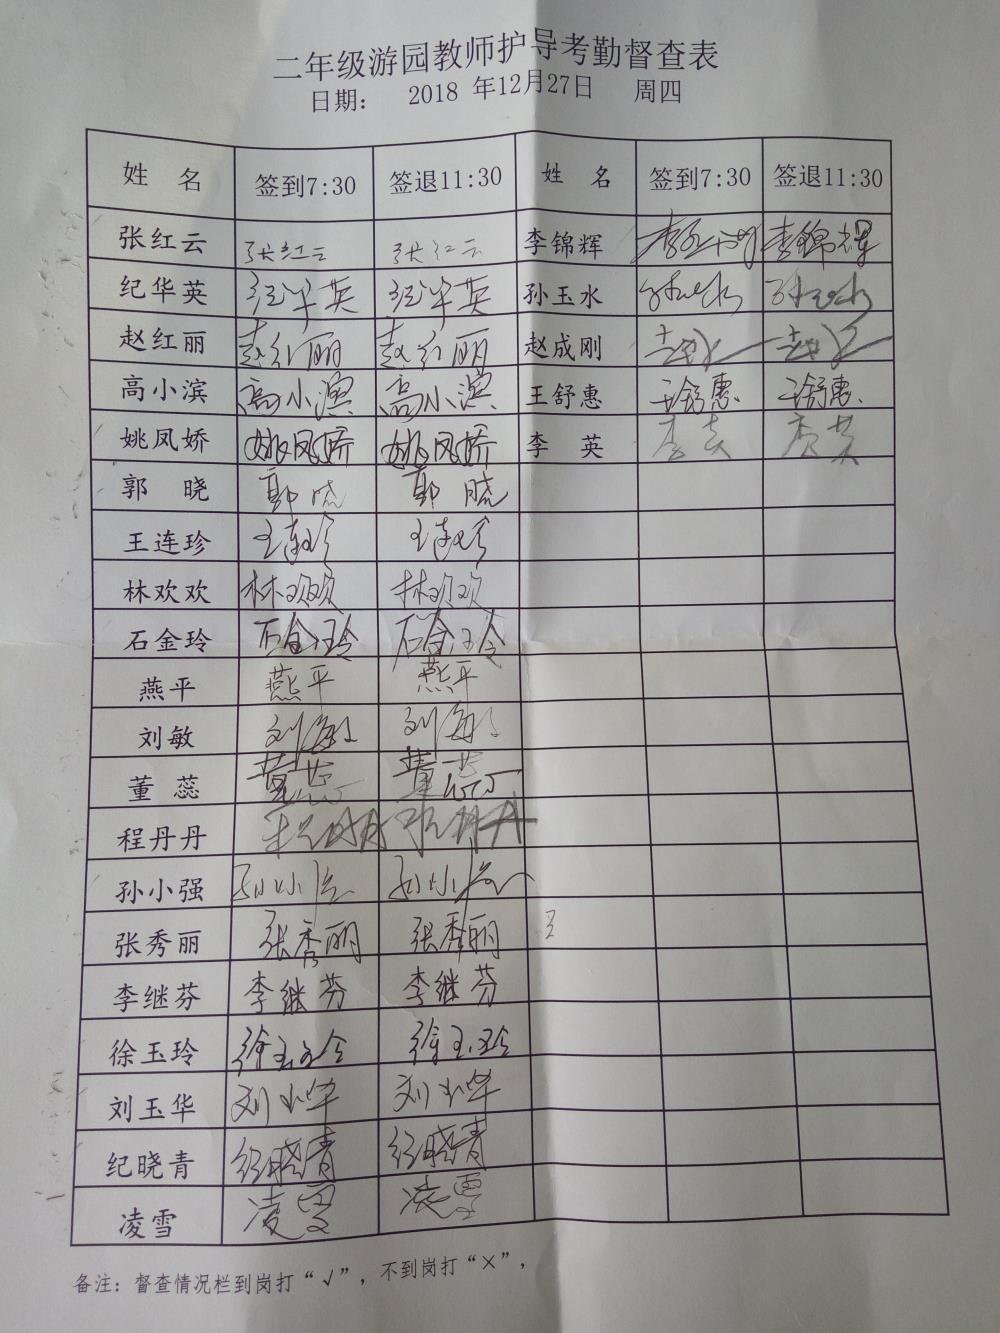 二年级游园教师护导考勤督查表
日期： 2018 年12月27日 周四
姓 名 签到7:30 签退11:30 姓 名 签到7:30 签退11:30
张红云 张红云 张红云 李锦辉 李锦辉 李锦辉
纪华英 纪华英 纪华英 孙玉水 孙玉水 孙玉水
赵红丽 赵红丽 赵红丽 赵成刚
高小滨 高小滨 高小滨 王舒惠 王舒惠 王舒惠
姚凤娇 姚凤娇 姚凤娇 李 英 李英 李英
郭 晓 郭晓 郭晓
王连珍 王连珍 王连珍
林欢欢 林欢欢 林欢欢
石金玲 石金玲 石金玲
燕平 燕平 燕平
刘敏 刘敏 刘敏
董 蕊 董蕊 董蕊
程丹丹 程丹丹 程丹丹
孙小强 孙小强 孙小强
张秀丽 张秀丽 张秀丽
李继芬 李继芬 李继芬
徐玉玲 徐玉玲 徐玉玲
刘玉华 刘玉华 刘玉华
纪晓青 纪晓青 纪晓青
凌雪 凌雪 凌雪
备注：督查情况栏到岗打“√”，不到岗打“×”，